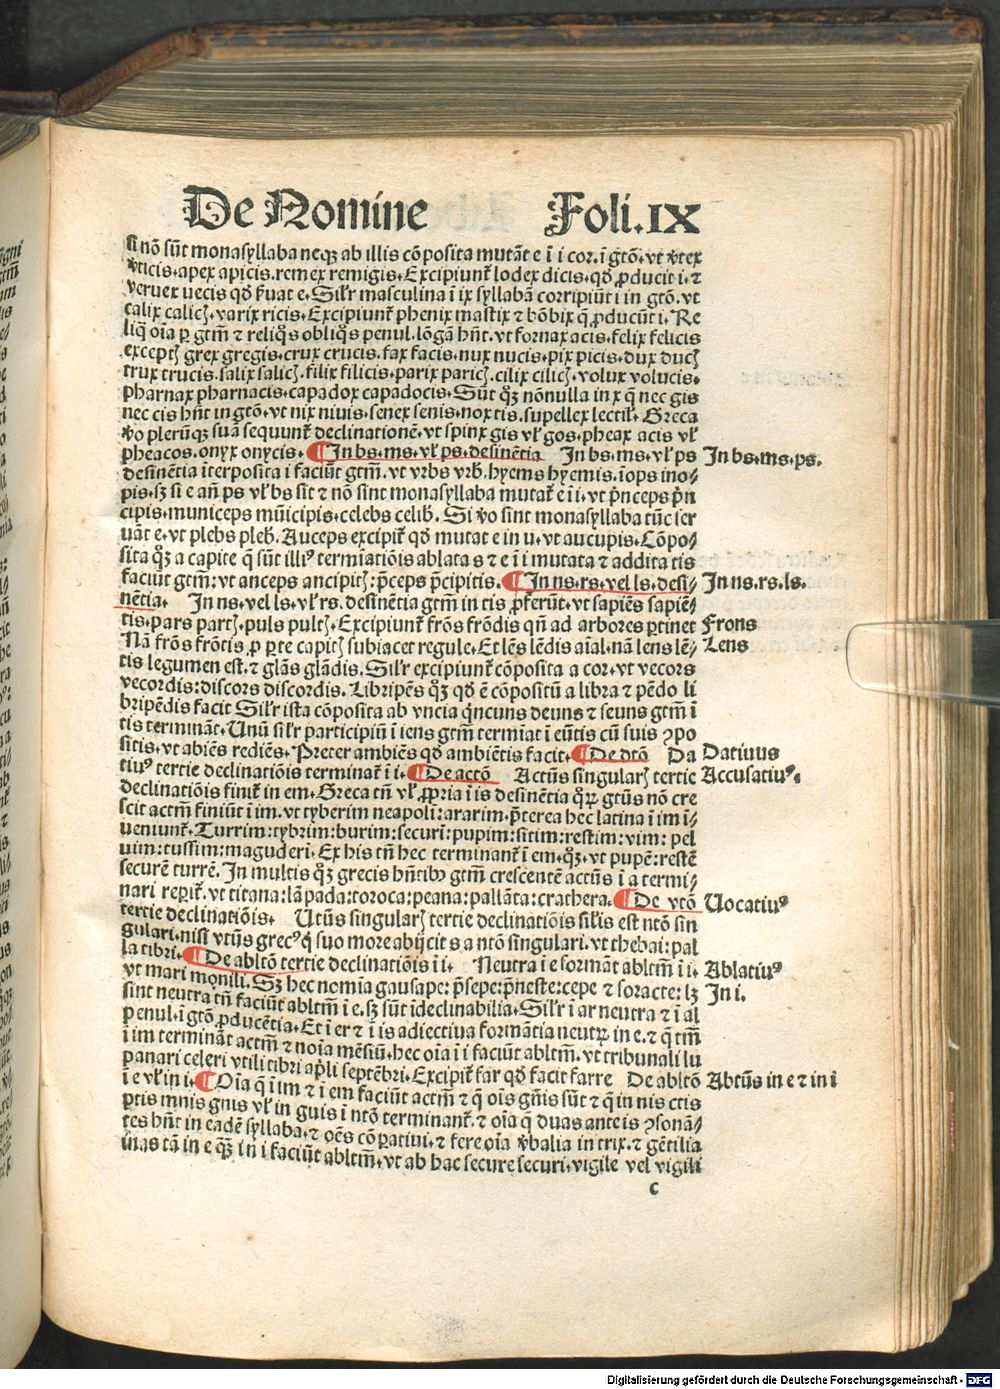 De Nomine Foli.IX
si nō sūt monasyllaba neqȝ ab illis cōposita mutāt e ī i cor. ī gtō. vt v̄tex
v̄ticis. apex apicis. remex remigis. Excipiunt̄ lodex dicis. qđ ꝓducit i. ⁊
veruex uecis qđ ẜuat e. Silr̄ masculina ī ix syllabā corripiūt i in gtō. vt
calix calicꝭ. varix ricis. Excipiunt̄ phenix mastix ⁊ bōbix q̄ ꝓducūt i. Re
liq̄ oīa ꝑ gtm̄ ⁊ reliq̊s obliq̊s penul. lōgā hn̄t. vt fornax acis. felix felicis
exceptꝭ grex gregis. crux crucis. fax facis. nux nucis. pix picis. dux ducꝭ
trux trucis. salix salicꝭ. filix filicis. parix paricꝭ. cilix cilicꝭ. volux volucis.
pharnax pharnacis. capadox capadocis. Sūt qȝ nōnulla in x q̄ nec gis
nec cis hn̄t in gtō. vt nix niuis. senex senis. nox tis. supellex lectil̄. Greca
v̄o plerūqȝ suā sequunt̄ declinationē. vt spinx gis vl̄ gos. pheax acis vl̄
pheacos. onyx onycis. ¶ In bs. ms. vl̄ ps. desinētia In bs. ms. vl̄ ps
desinētia īterposita i faciūt gtm̄. vt vrbs vrb̄. hyems hyemis. īops ino⸗
pis. sȝ si e an̄ ps vl̄ bs sīt ⁊ nō sint monasyllaba mutāt̄ e ī i. vt p̄nceps p̄n
cipis. municeps mūicipis. celebs celib̄. Si v̄o sint monasyllaba tūc ser
uāt e. vt plebs pleb̄. Auceps excipit̄ qđ mutat e in u. vt aucupis. Cōpo⸗
sita qȝ a capite q̄ sūt illiꝰ termīatiōis ablata s ⁊ e ī i mutata ⁊ addita tis
faciūt gtm̄: vt anceps ancipitꝭ: p̄ceps p̄cipitis. ¶ In ns. rs. vel ls. desi⸗
nētia. In ns. vel ls. vl̄ rs. desinētia gtm̄ in tis ꝓferūt. vt sapiēs sapiē⸗
tis. pars partꝭ. puls pultꝭ. Excipiunt̄ frōs frōdis qn̄ ad arbores ꝑtinet
Nā frōs frōtis. ꝓ ꝑte capitꝭ subiacet regule. Et lēs lēdis aīal. nā lens lē⸗
tis legumen est. ⁊ glās glādis. Silr̄ excipiunt̄ cōposita a cor. vt vecors
vecordis: discors discordis. Libripēs qȝ qđ ē cōpositū a libra ⁊ pēdo li
bripēdis facit Silr̄ ista cōposita ab vncia q̄ncuns deuns ⁊ seuns gtm̄ ī
tis terminät. Unū silr̄ participiū ī iens gtm̄ termīat ī eūtis cū suis ꝯpo
sitis. vt abiēs rediēs. Preter ambiēs qđ ambiētis facit. ¶ De dtō Da
tiuꝰ tertie declinatiōis terminat̄ ī i. ¶ De actō Actūs singularꝭ tertie
declinatiōis finit̄ in em. Greca tn̄ vl̄ ꝓpria ī is desinētia qꝝ gtūs nō cre
scit actm̄ finiūt ī im. vt tyberim neapoli: ararim. p̄terea hec latina ī im ī⸗
ueniunt̄. Turrim: tybrim: burim: securī: pupim: sitim: restim: vim: pel
uim: tussim: maguderī. Ex his tn̄ hec terminant̄ ī em. qȝ. vt pupē: restē
securē turrē. In multis qȝ grecis hn̄tibꝰ gtm̄ crescentē actūs ī a termi⸗
nari reꝑit̄. vt titana: lāpada: toroca: peana: pallāta: crathera. ¶ De vtō
tertie declinatiōis. Utūs singularꝭ tertie declinatiōis sil̄is est ntō sin
gulari. nisi vtūs grecꝰ q̇ suo more abijcit s a ntō singulari. vt thebai: pal
la tibri. ¶ De abltō tertie declinatiōis ī i. Neutra ī e formāt abltm̄ ī i.
vt mari monili. Sȝ hec nomīa gausape: p̄sepe: p̄neste: cepe ⁊ soracte: lȝ
sint neutra tn̄ faciūt abltm̄ ī e. sȝ sūt īdeclinabilia. Silr̄ ī ar neutra ⁊ ī al
penul. ī gtō ꝓducētia. Et ī er ⁊ ī is adiectiua formātia neutꝝ in e. ⁊ q̄ tm̄
ī im terminät actm̄ ⁊ noīa mēsiū. hec oīa ī i faciūt abltm̄. vt tribunali lu
panari celeri vtili tibri apl̄i septēbri. Excipit̄ far qđ facit farre De abltō
ī e vl̄ in i. ¶ Oīa q̄ ī im ⁊ ī em faciūt actm̄ ⁊ q̄ oīs gn̄is sūt ⁊ q̄ in nis ctis
ptis mnis gnis vl̄ in guis ī ntō terminant̄. ⁊ oīa q̄ duas ante is ꝯsonā⸗
tes hn̄t in eadē syllaba. ⁊ oēs cōꝑatiui. ⁊ fere oīa v̄balia in trix. ⁊ gētilia
in as tā in e qȝ̄ in i faciūt abltm̄. vt ab hac secure securi. vigile vel vigili
c
In bs. ms. ps.
In ns. rs. ls.
Frons
Lens
Datiuus
Accusatiuꝰ.
Uocatiuꝰ
Ablatiuꝰ
In i.
Abtūs in e ⁊ in i
Digitalisierung gefördert durch die Deutsche Forschungsgemeinschaft - DFG